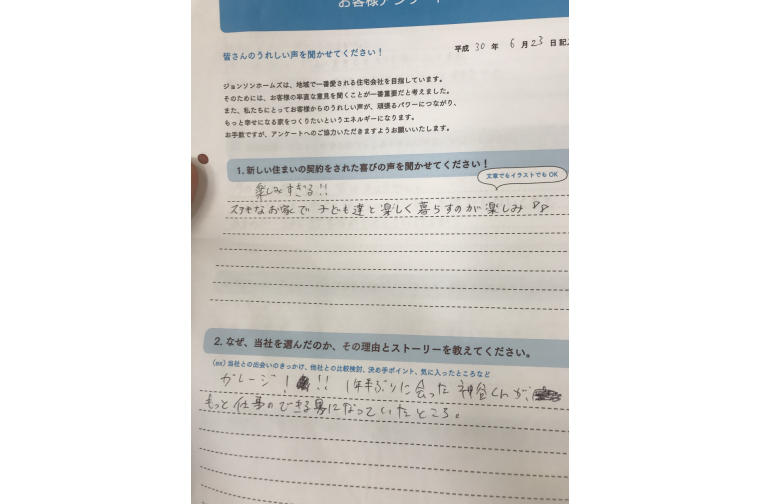 お客様アンケート
皆さんのうれしい声を聞かせてください！
平成 30 年 6 月 23 日 記入
ジョンソンホームズは、地域で一番愛される住宅会社を目指しています。
そのためには、お客様の率直な意見を聞くことが一番重要だと考えました。
また、私たちにとってお客様からのうれしい声が、頑張るパワーにつながり、
もっと幸せになる家をつくりたいというエネルギーになります。
お手数ですが、アンケートへのご協力いただきますようお願いいたします。
1. 新しい住まいの契約をされた喜びの声を聞かせてください！
文章でもイラストでもOK
楽しみすぎる!!
ステキなお家で 子ども達と楽しく暮らすのが楽しみ
2. なぜ、当社を選んだのか、その理由とストーリーを教えてください。
(ex) 当社との出会いのきっかけ、他社との比較検討、決め手ポイント、気に入ったところなど
ガレージ! !! 1年半ぶりに会った 神谷くんが、
もっと仕事のできる男になっていたところ。